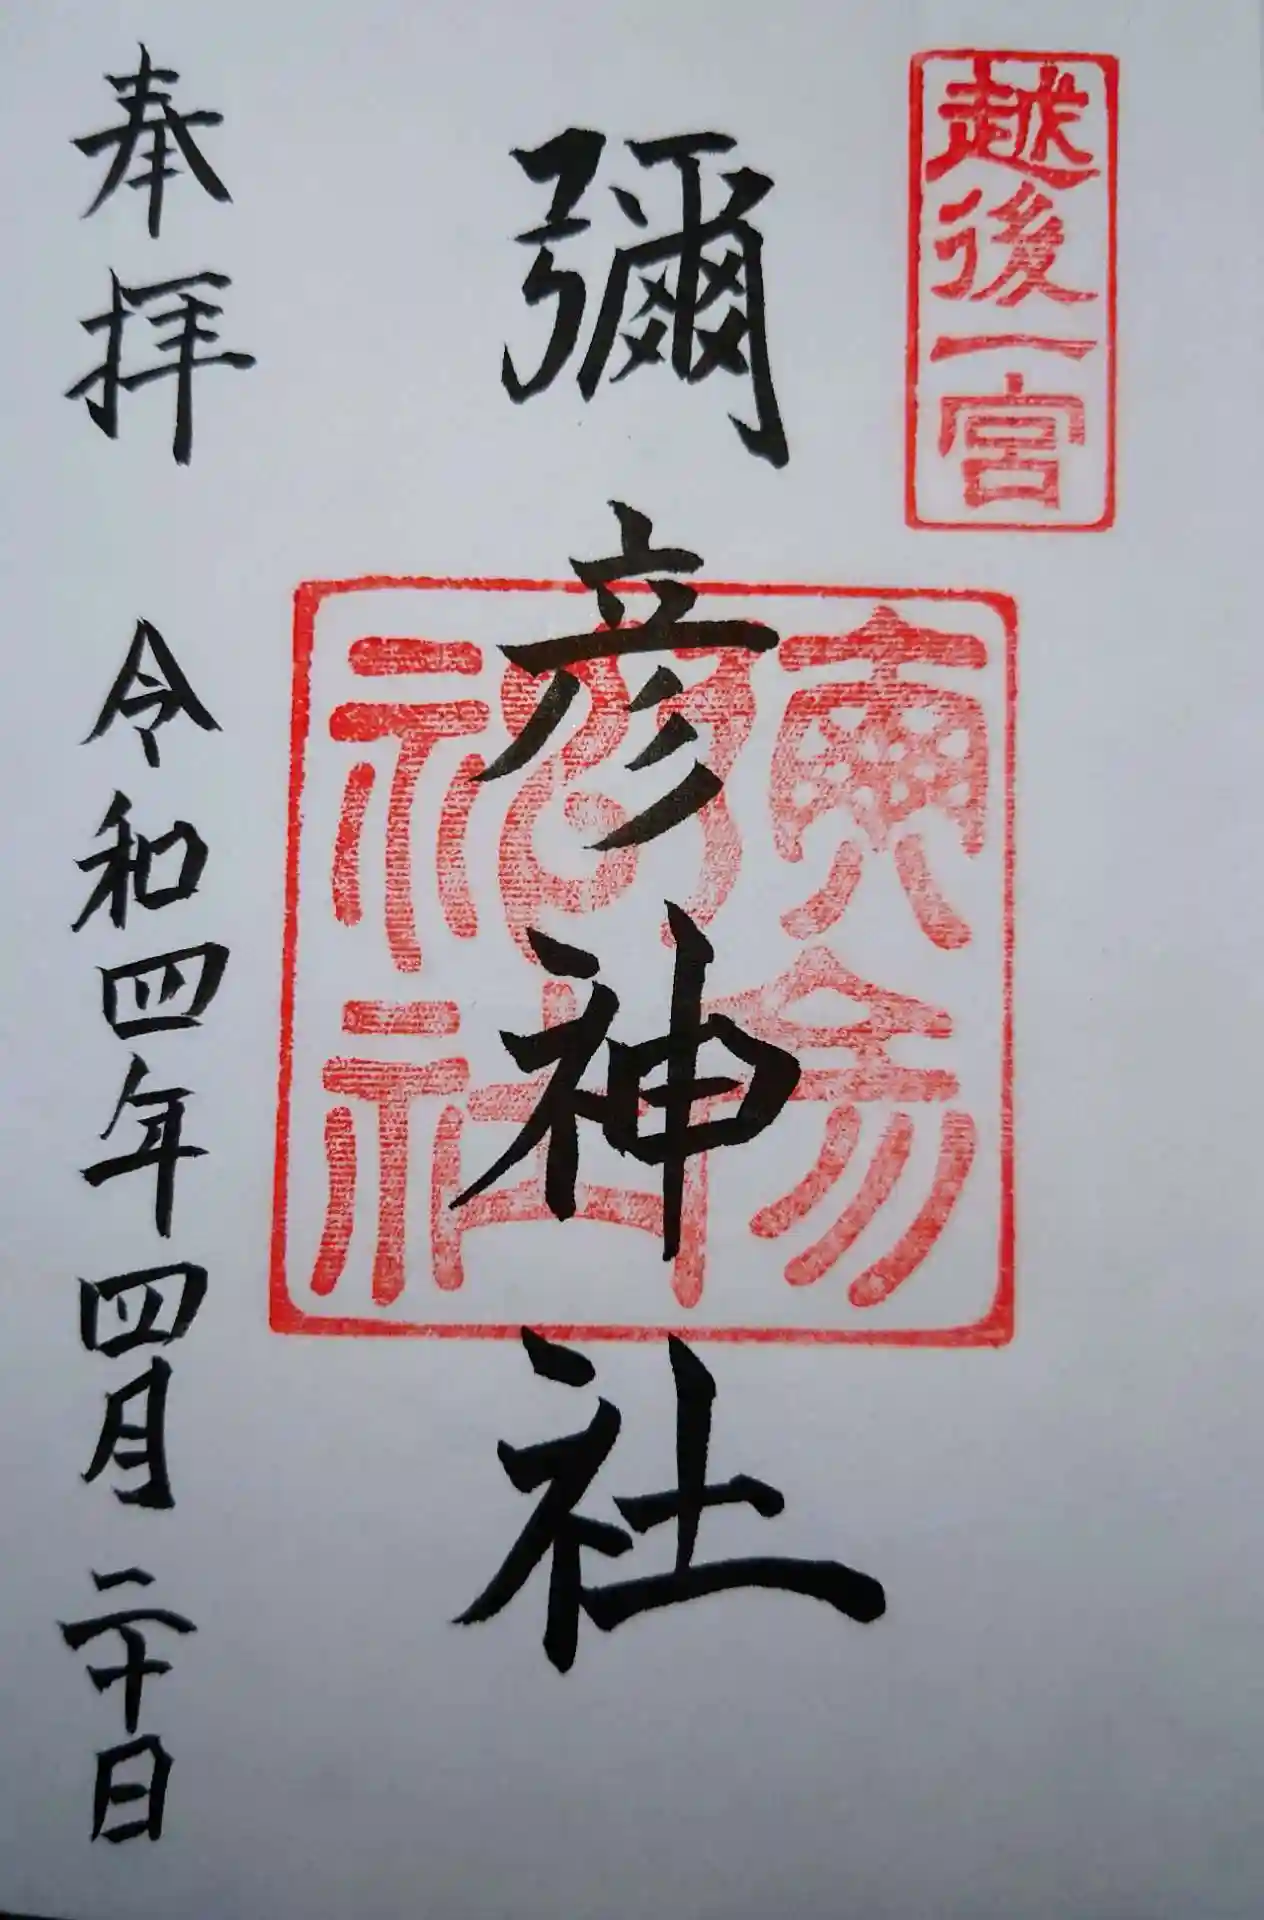 越後一宮
彌彦神社
奉拝　令和四年四月二十日